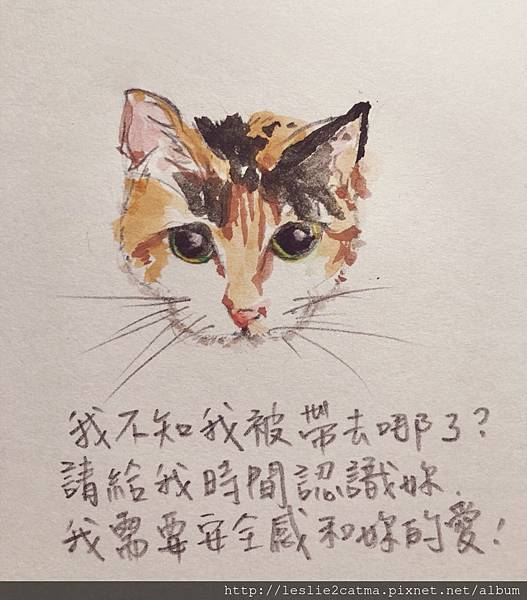 我不知我被帶去哪了?
請給我時間認識妳.
我需要安全感和妳的愛!
http://leslie2catma.pixnet.net/album